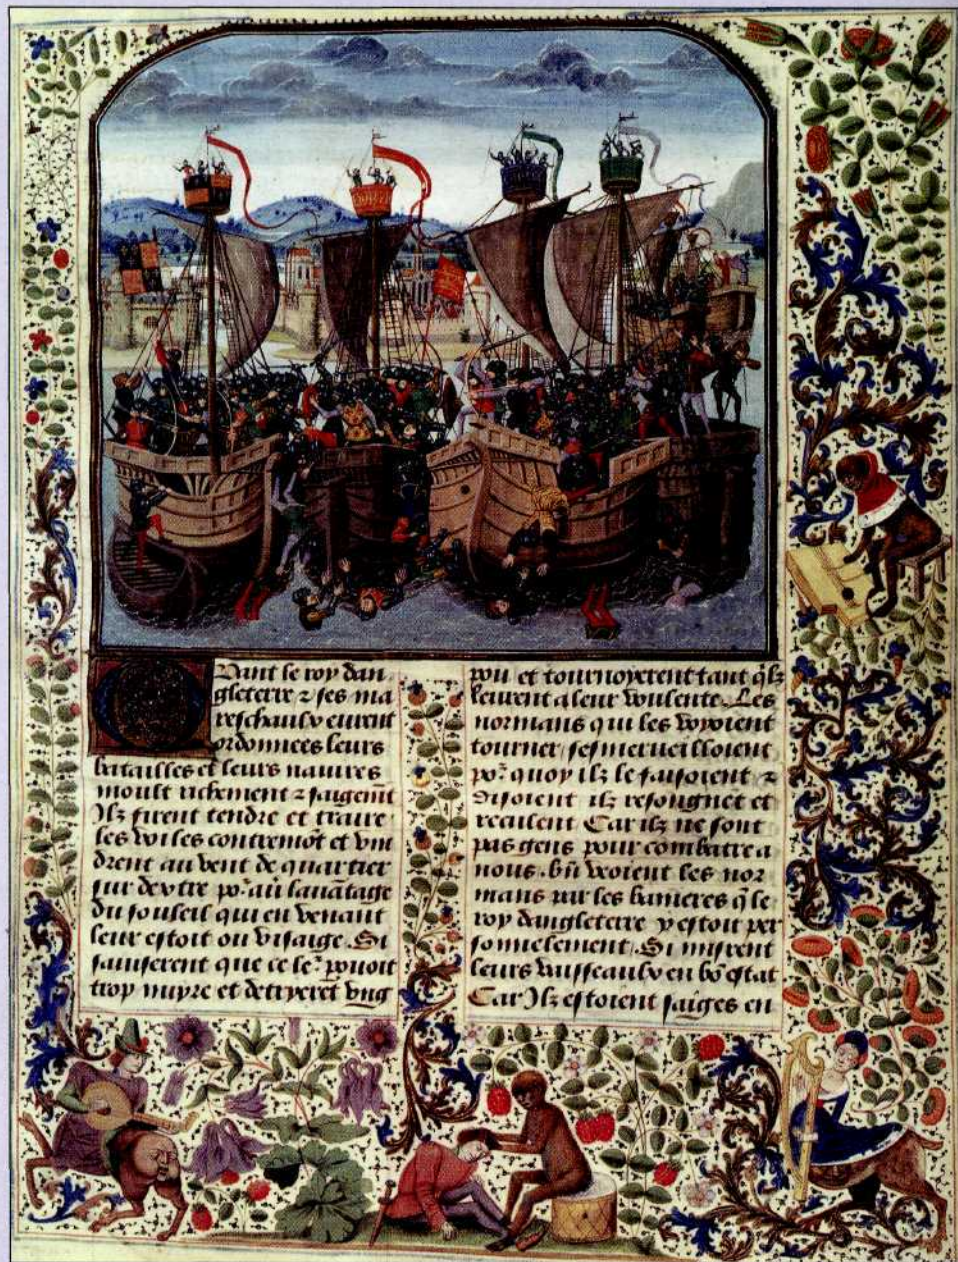 Quant le roy dan
gleterre ⁊ ses ma
reschaulx eurent
ordonnees leurs
batailles et leurs nauires
moult richement ⁊ saigemẽt
Ilz firent tendre et traire
les voiles contremõt et vin
drent au vent de quartier
sur dextre poᷣ auoir lauãtage
du souleil qui en venant
leur estoit ou visaige Si
sauiserent que ce leᷣ pouoit
trop nuyre et detryerẽt vng
pou et tournoyerent tant q̃lz
leurent a leur voulente Les
normans qui les veoyent
tourner sesmerueilloient
poᷣ quoy ilz le faisoient ⁊
disoient ilz resongnet et
reculent Car ilz ne sont
pas gens pour combatre a
nous bñ veoient les nor
mans par les banieres q̃ le
roy dangleterre y estoit per
sonnelement Si misrent
leurs vaisseaulx en bõ estat
Car Ilz estoient saiges en